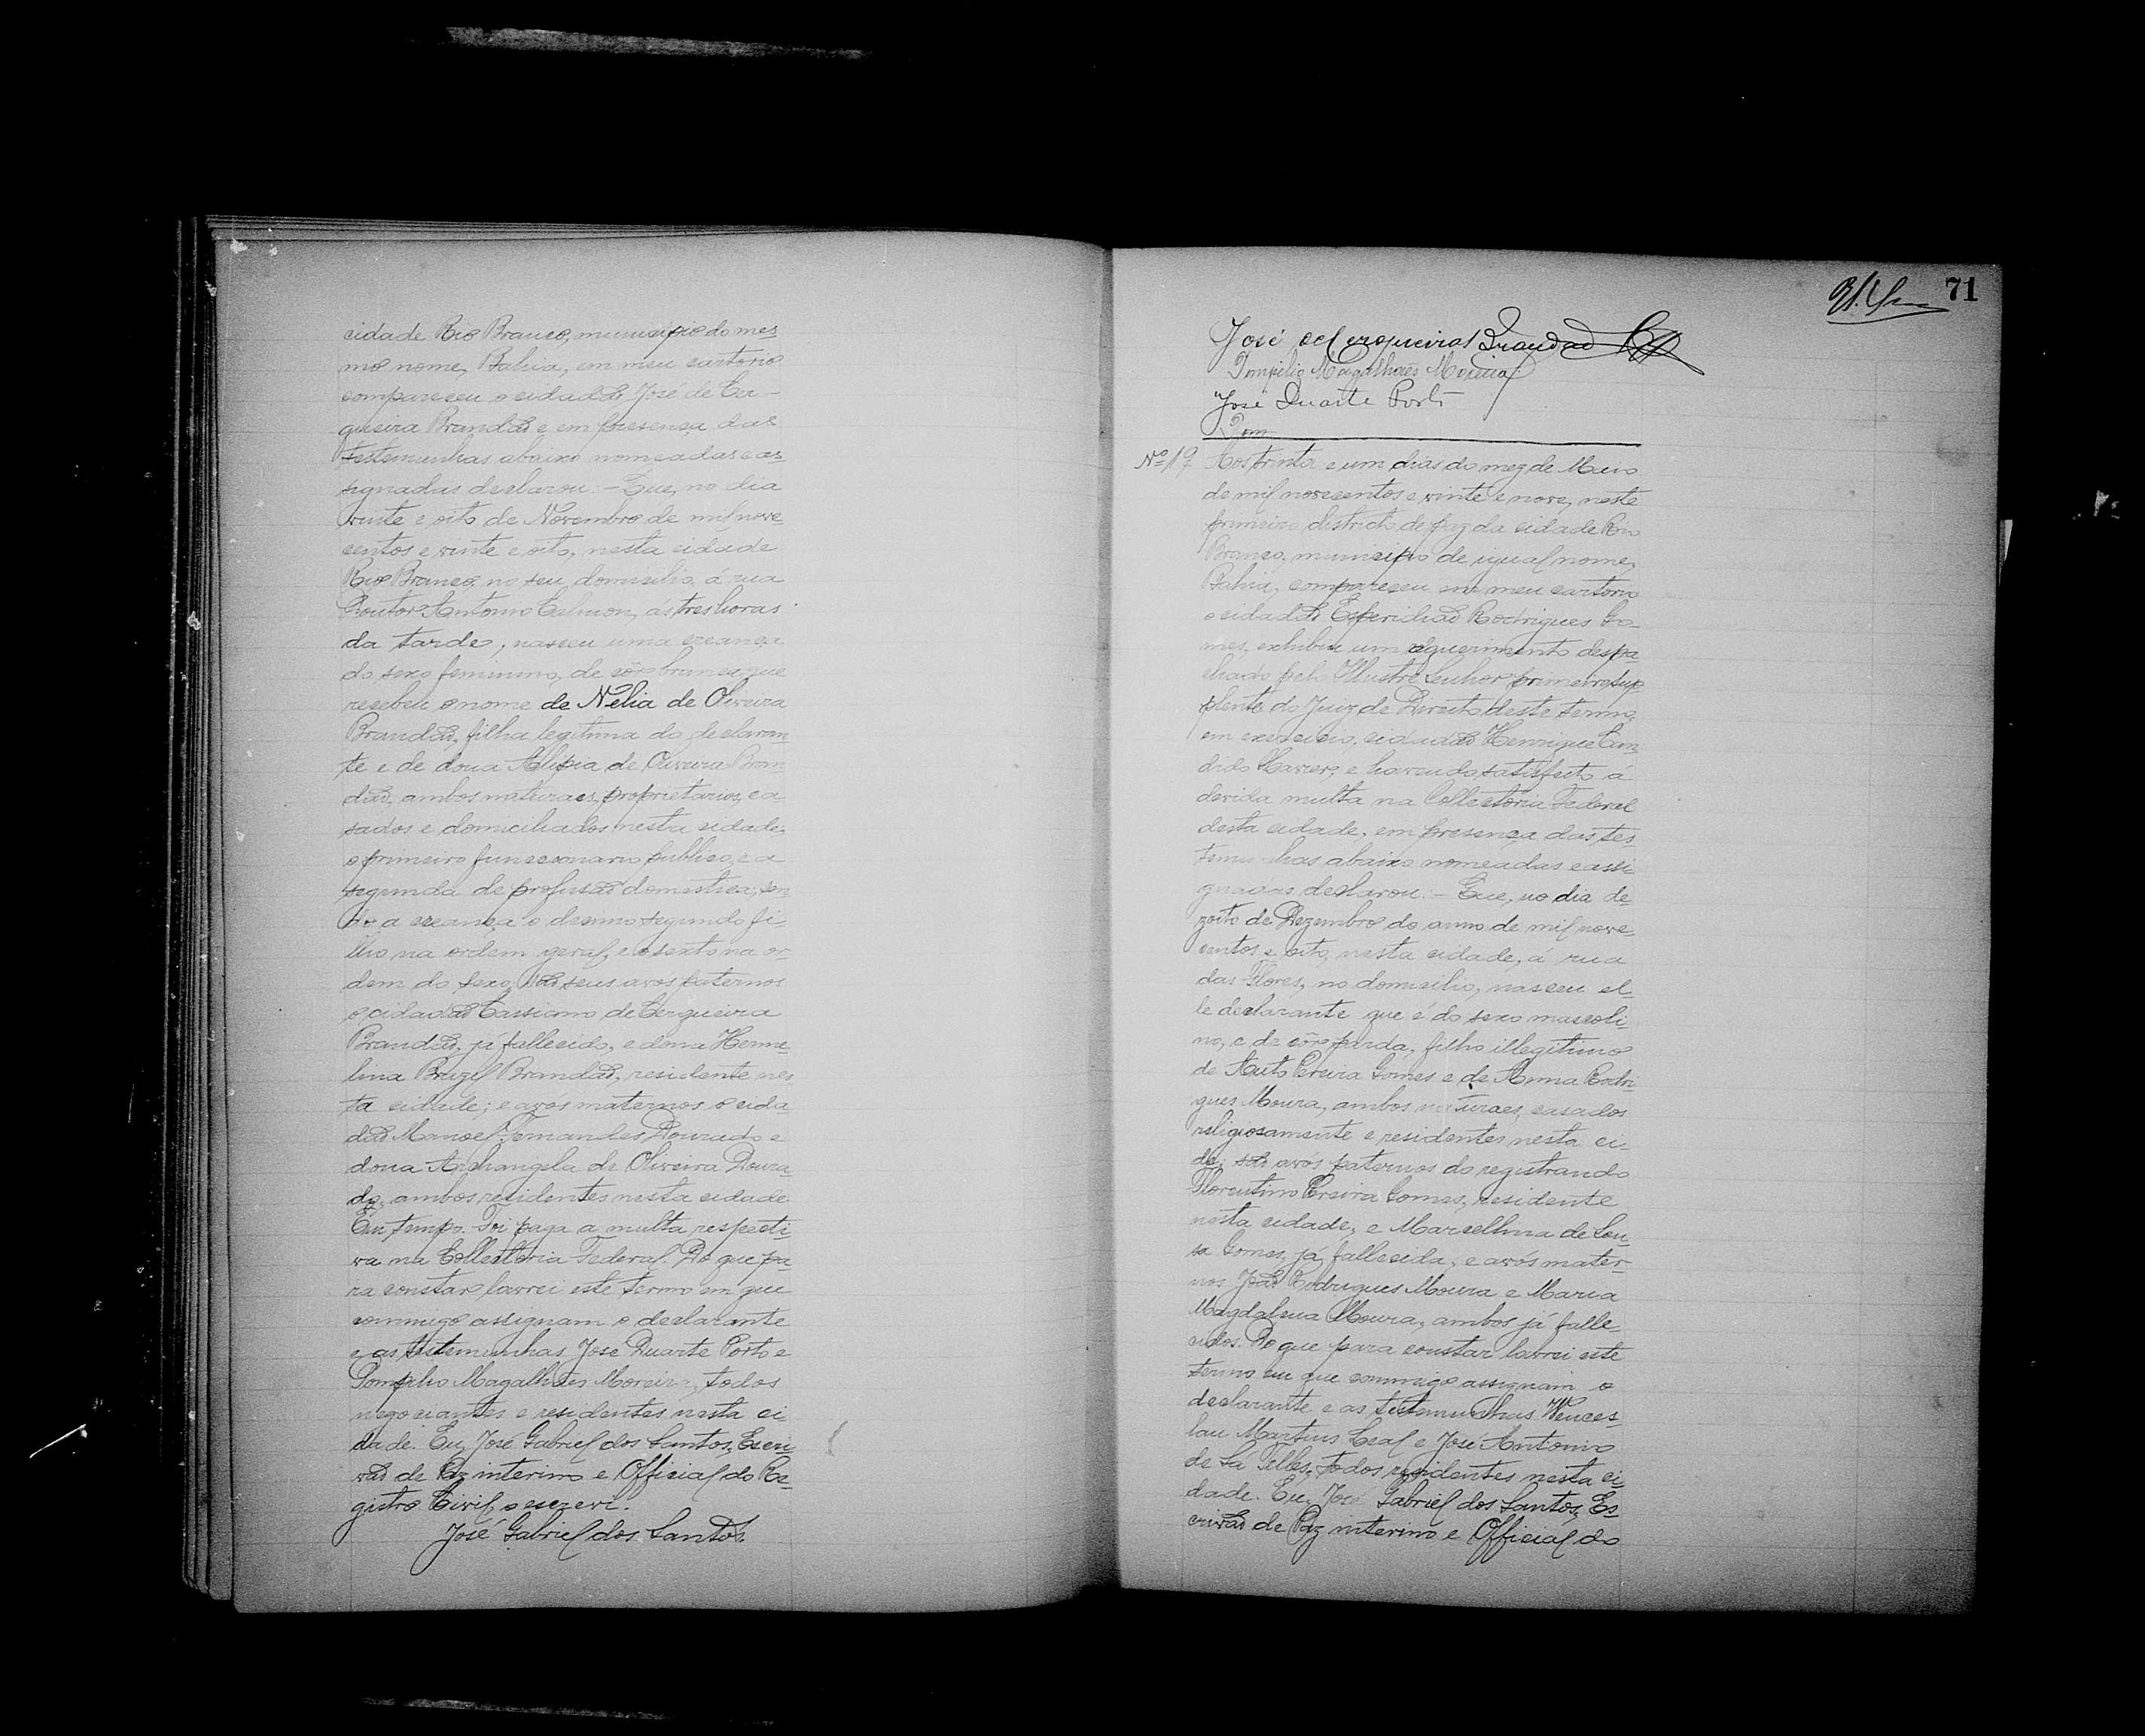 cidade Rio Branco, municipio do mes
mo nome, Bahia, em meu cartorio
compareceu o cidadão José de Cer-
queira Brandão e em presença das
testemunhas abaixo nomeadas e as
signadas declarou:- Que, no dia
vinte e oito de Novembro de mil nove
centos e vinte e oito, nesta cidade
Rio Branco, no seu domicilio, á rua
Doutor Antonio Calmon, ás tres horas
da tarde, nasceu uma creança
do sexo feminino, de côr branca que
recebeu o nome de Nélia de Oliveira
Brandão, filha legitima do declaran
te e de dona Alipia de Oliveira Bran
dão, ambos naturaes, proprietarios, ca
sados e domiciliados nesta cidade;
o primeiro funccionario publico, e a
segunda de profissão domestica; sen
do a creança o decimo segundo fi-
lho na ordem geral, e o sexto na or-
dem do sexo. São seus avos paternos
o cidadão Cassiano de Cerqueira
Brandão, já fallecido, e dona Herme
lina Brandão, residente nes
ta cidade; e avos maternos o cida
dão Manoel Fernandes Dourado e
dona Archangela de Oliveira Doura
do, ambos residentes nesta cidade
Em tempo. Foi paga a multa respecti
va na Collectoria Federal. Do que pa
ra constar lavrei este termo em que
commigo assignam o declarante
e as testemunhas José Duarte Porto e
Pompilio Magalhães Moreira, todos
negociantes e residentes nesta ci
dade. Eu, José Gabriel dos Santos, Escri
vão de Paz interino e Official do Re
gistro Civil, o escrevi.
José Gabriel dos Santos.
71
José de Cerqueira Brandão
Pompilio Magalhães Moreira
José Duarte Porto
Nº 19 Aos trinta e um dias do mez de Maio
de mil novecentos e vinte e nove, neste
primeiro districto de paz da cidade Rio
Branco, municipio de igual nome,
Bahia, compareceu em meu cartorio
o cidadão Esperidião Rodrigues Go-
mes, exhibiu um requerimento despa
chado pelo Illustre Senhor primeiro sup
plente do Juiz de Direito deste termo,
em exercicio, cidadão Henrique Can
dido Xavier, e havendo satisfeito á
devida multa na Collectoria Federal
desta cidade, em presença das tes
temunhas abaixo nomeadas e assi
gnadas declarou:- Que, no dia de
zoito de Dezembro do anno de mil nove
centos e oito, nesta cidade, á rua
das Flores, no domicilio, nasceu el-
le declarante que é do sexo mascoli-
no, e de côr parda, filho illegitimo
de Auto Pereira Gomes e de Anna Rodri
gues Moura, ambos naturaes, casados
religiosamente e residentes nesta ci-
de; são avós paternos do registrando
Florentino Pereira Gomes, residente
nesta cidade, e Marcellina de Sou
sa Gomes, já fallecida; e avós mater-
nos João Rodrigues Moura e Maria
Magdalena Moura, ambos já falle-
cidos. Do que para constar lavrei este
termo em que commigo assignam o
declarante e as testemunhas Wences
lau Martins Leal e José Antonio
de Sá Telles, todos residentes nesta ci
dade. Eu, José Gabriel dos Santos, Es
crivão de Paz interino e Official do